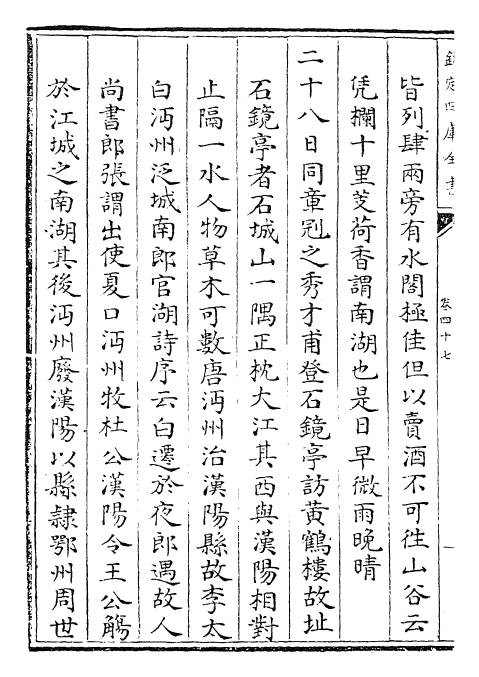 欽定四庫全書
卷四十七
皆列肆兩旁有水閣極佳但以賣酒不可徃山谷云
凭欄十里芰荷香謂南湖也是日早微雨晚晴
二十八日同章冠之秀才甫登石鏡亭訪黄鶴樓故址
石鏡亭者石城山一隅正枕大江其西與漢陽相對
止隔一水人物草木可數唐沔州治漢陽縣故李太
白沔州泛城南郎官湖詩序云白遷於夜郎遇故人
尚書郎張謂出使夏口沔州牧杜公漢陽令王公觴
於江城之南湖其後沔州廢漢陽以縣隷鄂州周世